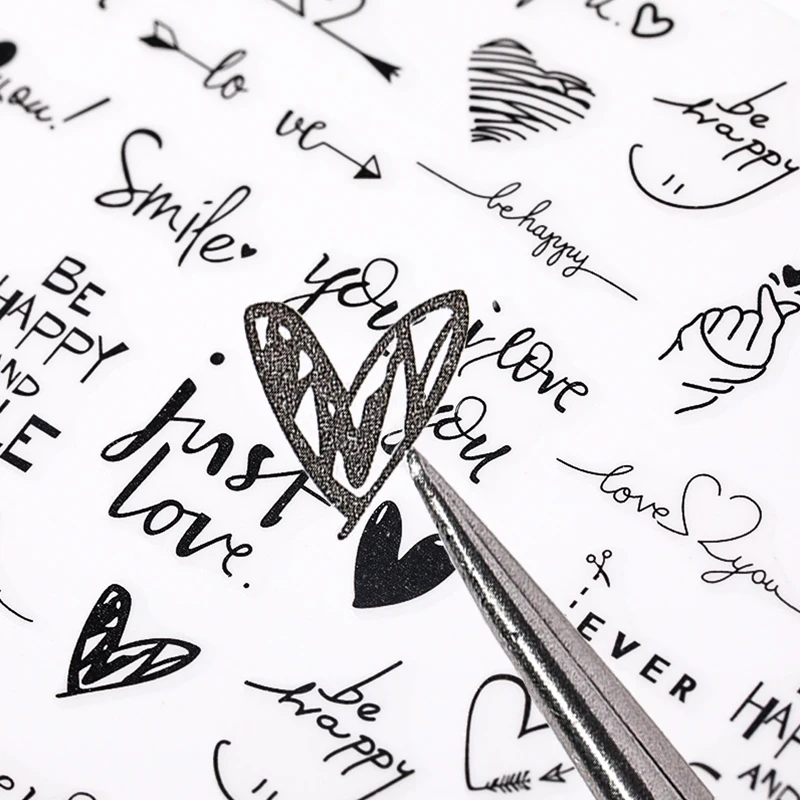 lo
ve
you!
be
happy
Smile
be happy
BE
HAPPY
AND
you
i love
you
just
love.
love you
EVER
be
happy
AND